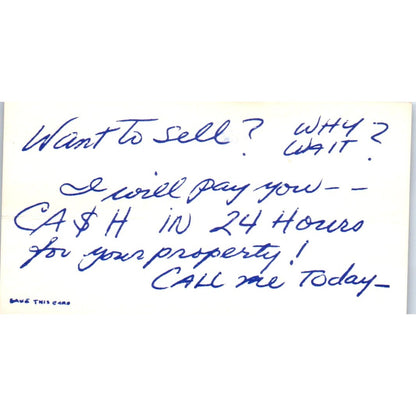 Want To sell? WHY
WAIT?
I will pay you--
CA$H IN 24 Hours
for your property!
CALL me Today-
SAVE THIS CARD